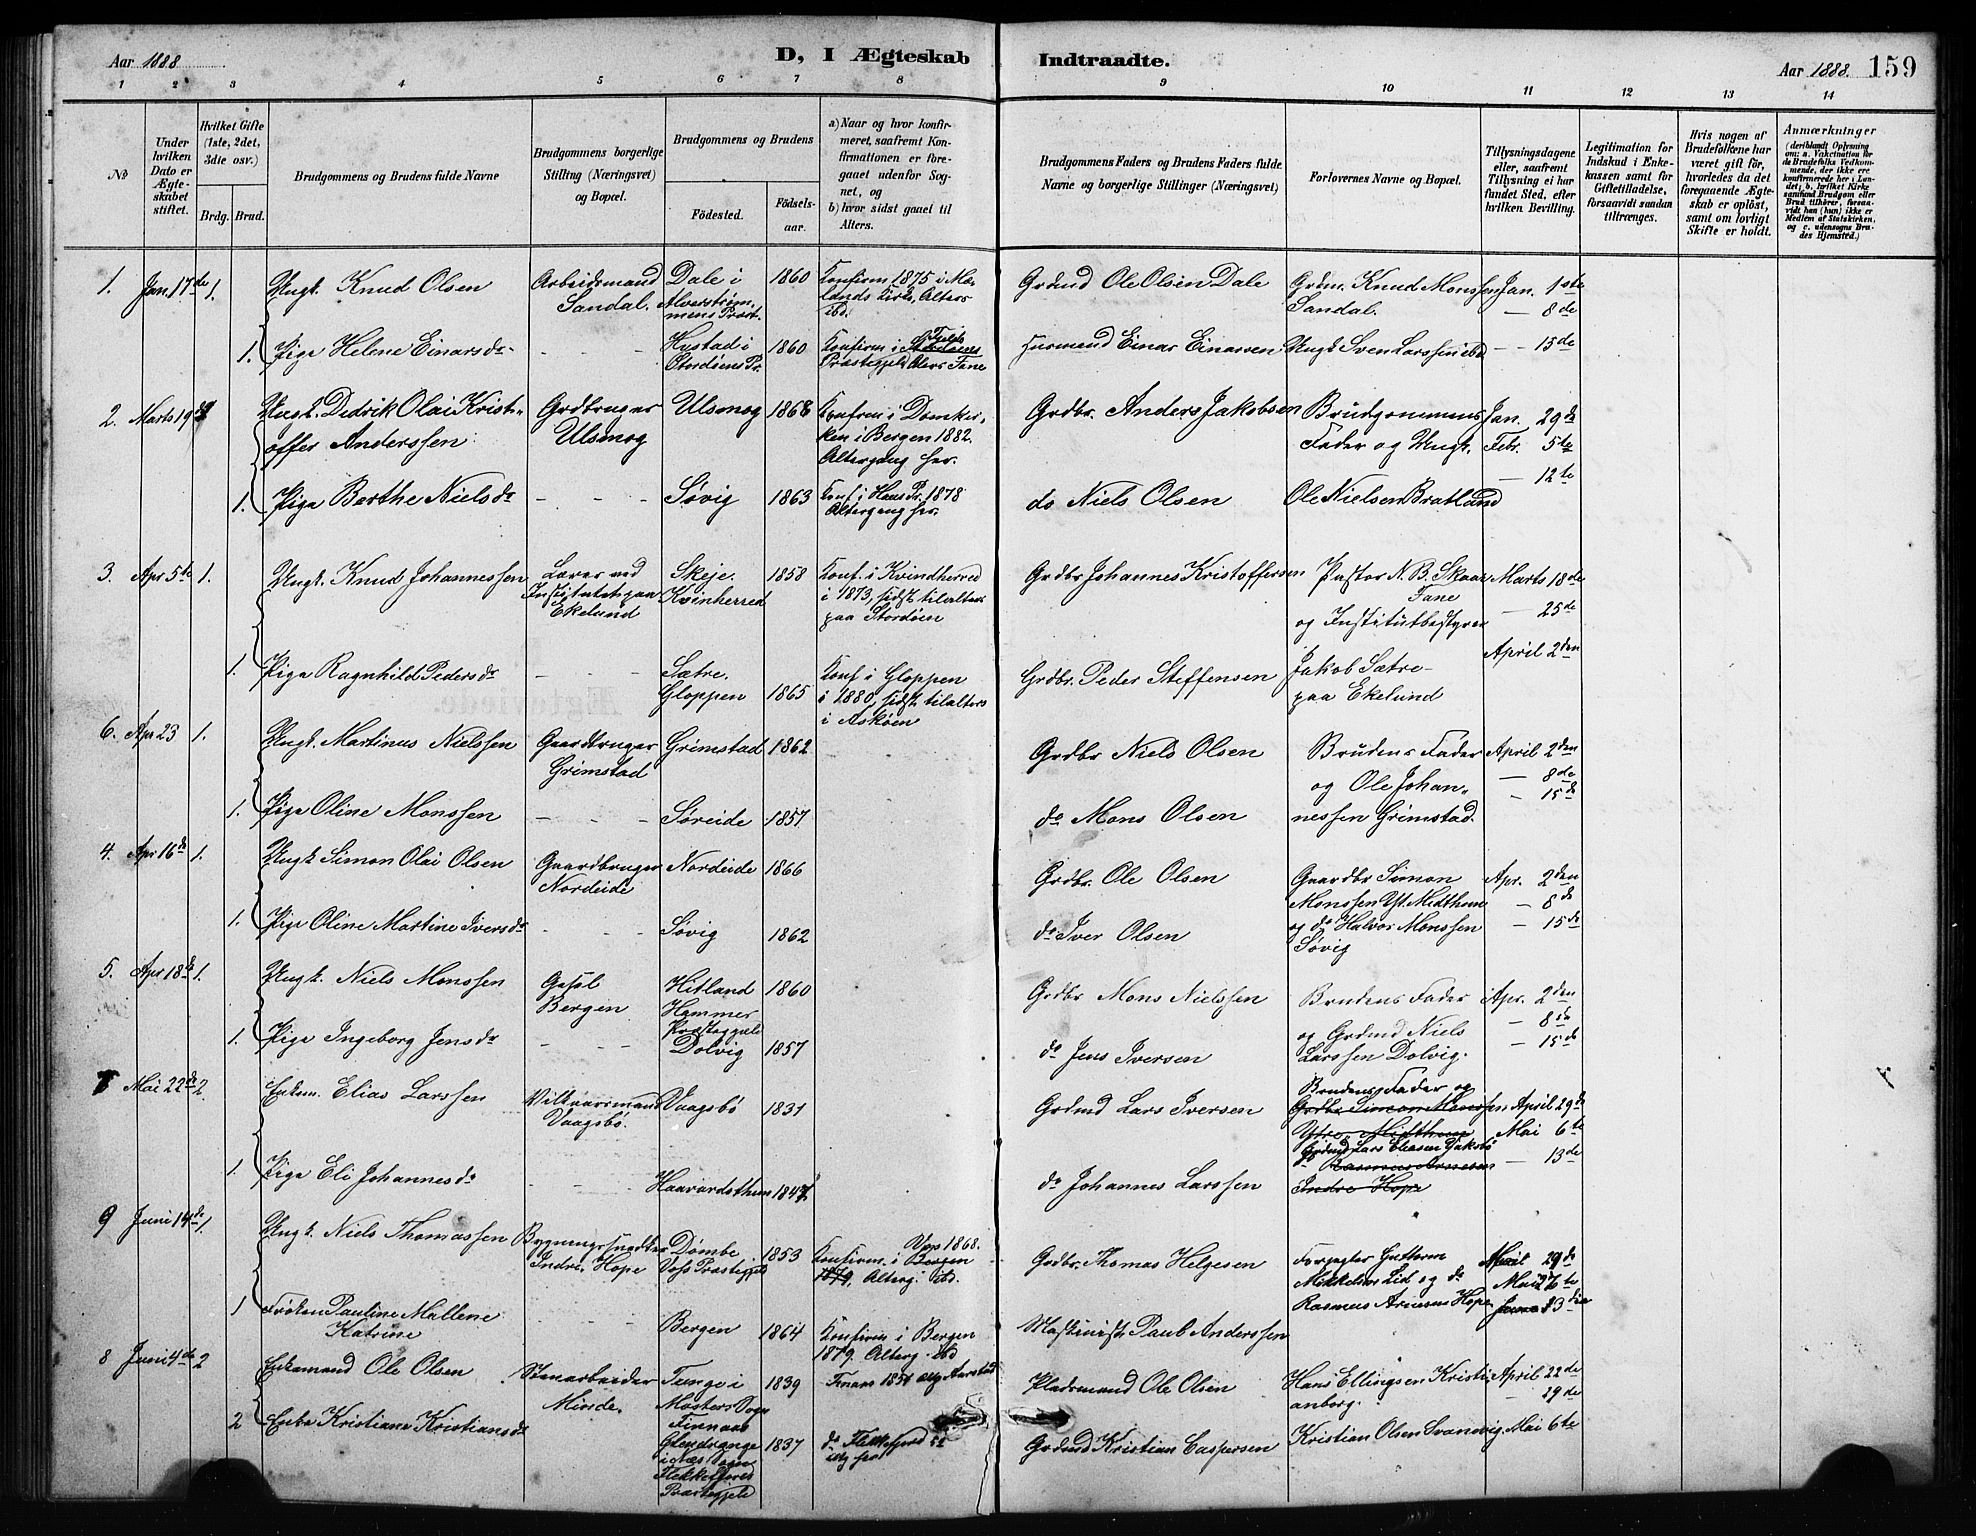 Aar 1888
D, I Ægteskab Indtraadte.
Aar 1888. 159
1 2 3 4 5 6 7 8 9 10 11 12 13 14
No
Under hvilken Dato er Ægteskabet stiftet.
Hvilket Gifte (1ste, 2det, 3die osv.)
Brdg. Brud.
Brudgommens og Brudens fulde Navne
Brudgommens borgerlige Stilling (Næringsvei) og Bopæl.
Brudgommens og Brudens
Fødested. Fødselsaar.
a) Naar og hvor konfirmeret, saafremt Konfirmationen er foregaaet udenfor Sognet, og
b) hvor sidst gaaet til Alters.
Brudgommens Faders og Brudens Faders fulde Navne og borgerlige Stillinger (Næringsvei)
Forlovernes Navne og Bopæl.
Tillysningsdagene eller, saafremt Tillysning ei har fundet Sted, efter hvilken Bevilling.
Legitimation for Indskud i Enkekassen samt for Giftetilladelse, forsaavidt saadan tiltrænges.
Hvis nogen af Brudefolkene har været gift før, hvorledes da det foregaaende Ægteskab er opløst, samt om lovligt Skifte er holdt.
Anmærkninger (deriblandt Oplysning om: a. Vakcination for de Brudefolks Vedkommende, der ikke ere konfirmerede her i Landet; b. hvilket Kirkesamfund Brudgom eller Brud tilhører, forsaavidt han (hun) ikke er Medlem af Statskirken, og c. udensogns Brudes Hjemsted.)
1. Jan. 17de 1. Ungk. Knud Olsen Arbeidsmand Sandal. Dale i Alverstrømmens Præst. 1860 Konfirm. 1875 i Mælands Kirke, Alters ibd. Grdmd Ole Olsen Dale Grdm. Knud Monssen Sandal. Jan. 1ste
— 8de
1. Pige Helene Einarsdr - - - Hystad i Stordøens Pr. 1860 Konfirm. i Præstegjeld Alters Fane Husmand Einar Einarsen Ungk. Sven Larssen ibd — 15de
2. Marts 19de 1 Ungk. Didrik Olai Kristoffer Anderssen Grdbruger Ulsmog Ulsmog 1868 Konfirm i Domkirken i Bergen 1882. Altergang her. Grdbr. Anders Jakobsen Brudgommens Fader og Ungk. Jan. 29de
Febr. 5te
— 12te
1. Pige Berthe Nielsdr - - - Søvig 1863 Konf. i Haus Pr. 1878 Altergang her. do Niels Olsen Ole Nielsen Bratland
3. Apr 5te 1. Ungk. Knud Johannessen Lærer ved Institutet paa Ekelund Skeje. Kvinherred 1858 Konf. i Kvindherred i 1873, sidst tilalters paa Stordøen Grdbr. Johannes Kristoffersen Pastor N. B. Skaar Fane og Institutbestyrer Marts 18de
— 25de
1. Pige Ragnhild Pedersdr - - - Sætre. Gloppen 1865 Konf i Gloppen i 1880, sidst tilalters i Askøen Grdbr. Peder Steffensen Jakob Sætre paa Ekelund April 2den
6. Apr 23 1. Ungk. Martinus Nielssen Gaardbruger Grimstad Grimstad 1862 Grdbr Niels Olsen Brudens Fader og Ole Johannessen Grimstad. April 2den
— 8de
1. Pige Oline Monssen - - - Søreide 1857 do Mons Olsen — 15de
4. Apr 16de 1. Ungk Simon Olai Olsen Gaardbruger Nordeide Nordeide 1866 Grdbr. Ole Olsen Gaardbr Simon Monssen Yt. Midthun og do Halvor Monssen Søvig Apr. 2den
— 8de
1. Pige Oline Martine Iversdr - - - Søvig 1862 do Iver Olsen — 15de
5. Apr 18de 1. Ungk. Niels Monssen Gesel Bergen Hitland Hammer Præstegjæld 1860 Grdbr Mons Nielssen Brudens Fader og Grdmd Niels Larssen Dolvig. Apr. 2den
— 8de
1. Pige Ingeborg Jensdr - - - Dolvig 1857 do Jens Iversen — 15de
7 Mai 22de 2. Enkem. Elias Larssen Vilkaarsmand Vaagsbø. Vaagsbø 1831 Grdmd Lars Iversen Brudens Fader og Grdbr. Simon Monssen Ytre Midthun April 29de
Mai 6te
Grdmd Lars Eliasen
do Rasmus Arnesen Indre Hope — 13de
1. Pige Eli Johannesdr - - - Haavardsthun 1847. do Johannes Larssen
9 Juni 14de 1. Ungk. Niels Thomassen Bygningssnedker Indre Hope Dømbe Voss Præstegjeld 1853 Konfirm. i Voss 1868. Bergen 1879. Alterg. ibd. Grdbr. Thomas Helgesen Forpagter Guttorm Mikkelsen Lid og do Rasmus Arnesen Hope April 29de
Mai 6te
13de
1 Frøken Pauline Mallene Katrine - - - Bergen 1864 Konfirm i Bergen 1879. Alterg. ibd Maskinist Paul Anderssen
8 Juni 4de 2 Enkemand Ole Olsen Stenarbeider Minde. Tunge i Mosters Sogn Finnaas 1839 Finaas 1851 Pladsmand Ole Olsen Hans Ellingsen Kristianborg. April 22de
29de
2 Enke Kristiane Kristiansdr i Næs Sogn Flekkefjords Præstegjeld 1837 do Flekkefjord 52 Grdmd Kristian Caspersen Kristian Olsen Svanevig. Mai 6te